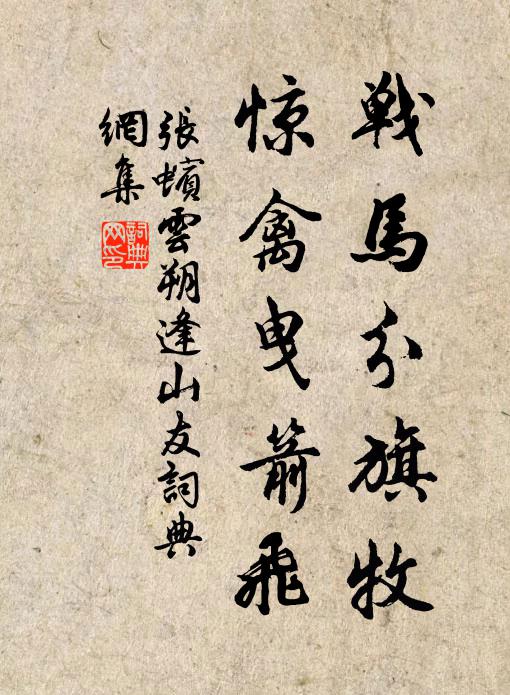 戰馬分旗牧
惊禽曳箭飛
張蠙雲朔逢山友詞典
網集
詞典
网印